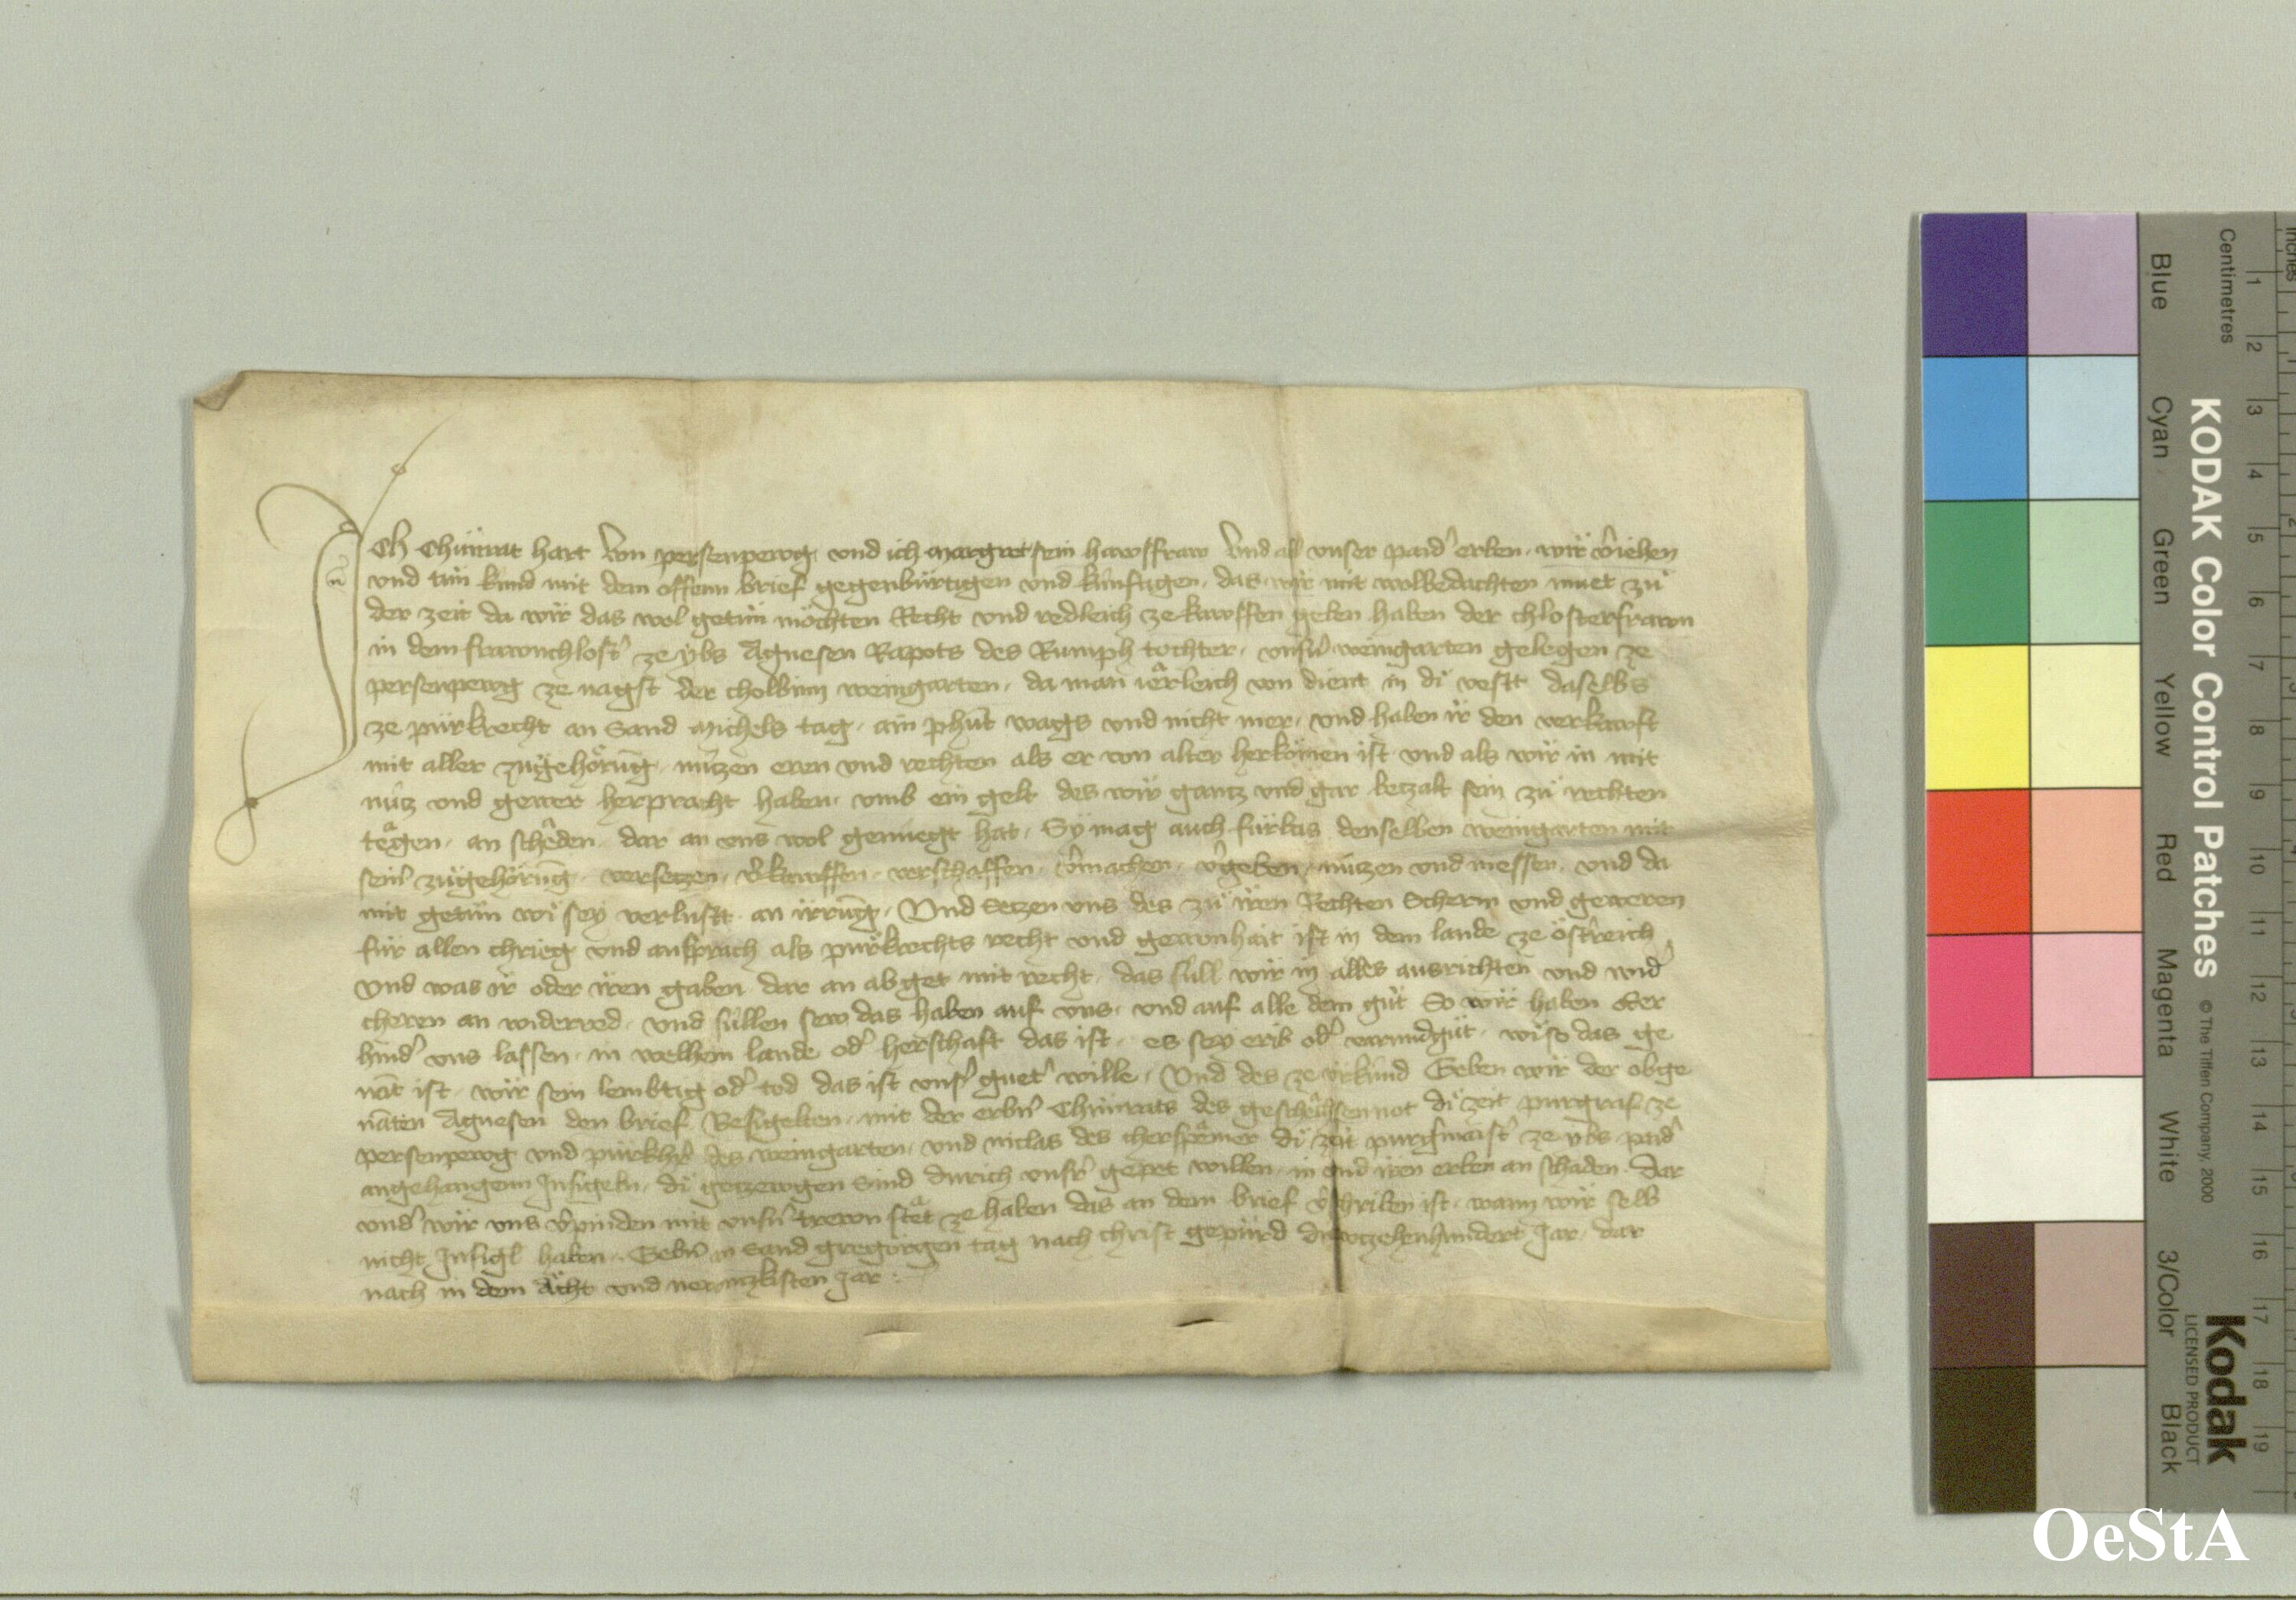 Ich Chunrat hart von persenpewg und ich margret sein hawsfraw Und all unser paid' erben, wir v'iehen
und tun kund mit dem offenn brief gegenburtigen und kunftigen, das wir mit wolbedachten muet zu
der zeit da wir das wol getun mochten Recht und redleich ze kawffen geben haben der chlosterfrawn
in dem frawnchlost' ze ybs Agnesen Rapots des Rumph tochter, unsn' weingarten gelegen ze
persenpewg ze nagst der cholbinn weingarten, da man ierleich von dient in di vestt daselbs
ze purkrecht an Sand Michels tag, ain phūt wags und nicht mer, und haben ir den verkawft
mit aller zugehorūg, nuczen eren und rechten als er von alter herkomen ist und als wir in mit
nucz und gewer herpracht haben, umb ein gelt des wir gantz und gar betzalt sein zu rechten
tegen, an scheden, dar an uns wol genuegt hat, Sy mag auch furbas denselben weingarten mit
sein' zugehorūg, versetzen, v'kawffen, verschaffen, v'machen, v'geben, nuczen und niessen, und da
mit getun wi sey verlustt an irrūg, Und Setzen uns des zu iren Rechten Scherm und geweren
fur allen chrieg und ansprach als purkrechts recht und gewonhait ist in dem lande ze ost'reich
Und was ir oder iren gaben dar an ab get mit recht, das sull wir in alles ausrichten und wid'
cheren an widerred, und sullen sew das haben auf uns, und auf alle dem gut So wir haben oder
hind' uns lassen, in welhem lande od' herschaft das ist, es sey erib od' varundgut, wi so das ge
nāt ist, wir sein lembtig od' tod das ist uns' guet' wille, Und des ze urkund Geben wir der obge
nāten Agnesen den brief Besigelten, mit der erbn' Chunrats des di zeit purgraf ze
persenpewg und purkh'r des weingarten, und niclas des di zeit ze ybs paid'
angehangenn Insigeln, di getzewgen Sind durich unsr' gepet willen, in und iren erben an schaden. Dar
und' wir uns v'pinden mit unsn' trewn stet ze haben das an dem brief v'schriben ist, wann wir selb
nicht Insigl haben. Gebn' an Sand gregorgen tag nach christ gepurd drewtzehenhundert Jar, dar
nach in dem Acht und newntzkisten Jar :
KODAK Color Control Patches
© The Tiffen Company, 2000
Kodak
LICENSED PRODUCT
Inches
Centimetres
1 2 3 4 5 6 7 8 9 10 11 12 13 14 15 16 17 18 19
Blue
Cyan
Green
Yellow
Red
Magenta
White
3/Color
Black
OeStA